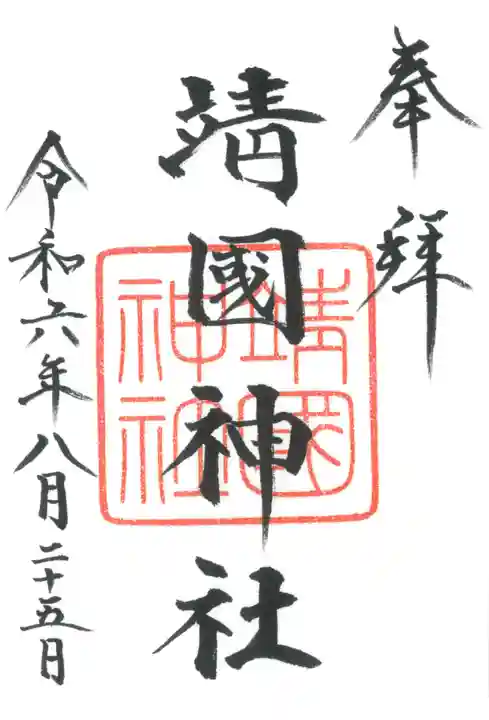 奉拝
靖國神社
靖國
神社
令和六年八月二十五日